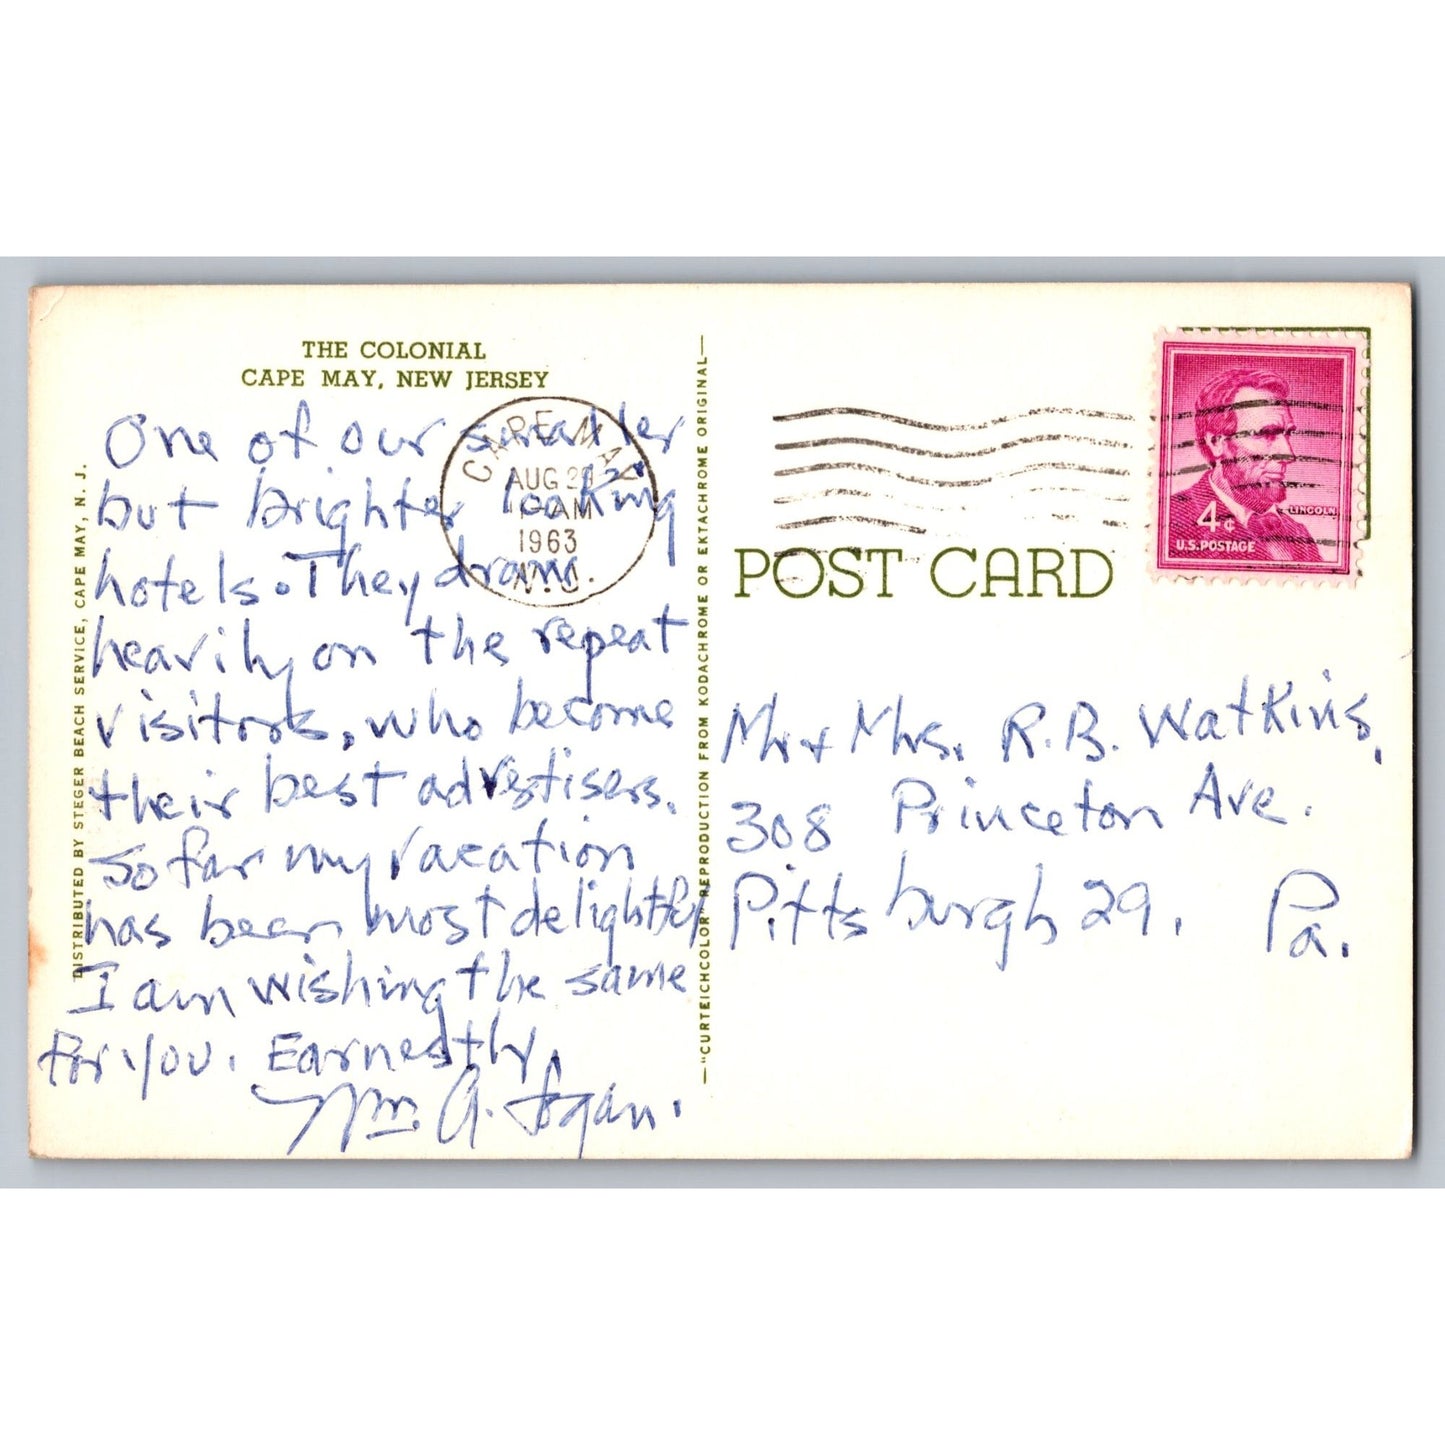 THE COLONIAL
CAPE MAY, NEW JERSEY
One of our smaller
but brighter looking
hotels. They draw
heavily on the repeat
visitors, who become
their best advertisers.
So far my vacation
has been most delightful
I am wishing the same
for you. Earnestly,
Wm. A. Logan.
CAPE MAY
AUG 29
AM
1963
N.J.
DISTRIBUTED BY STEGER BEACH SERVICE, CAPE MAY, N. J.
—"CURTEICHCOLOR" REPRODUCTION FROM KODACHROME OR EKTACHROME ORIGINAL—
4¢
LINCOLN
U.S. POSTAGE
POST CARD
Mr + Mrs. R.B. Watkins,
308 Princeton Ave.
Pittsburgh 29. Pa.